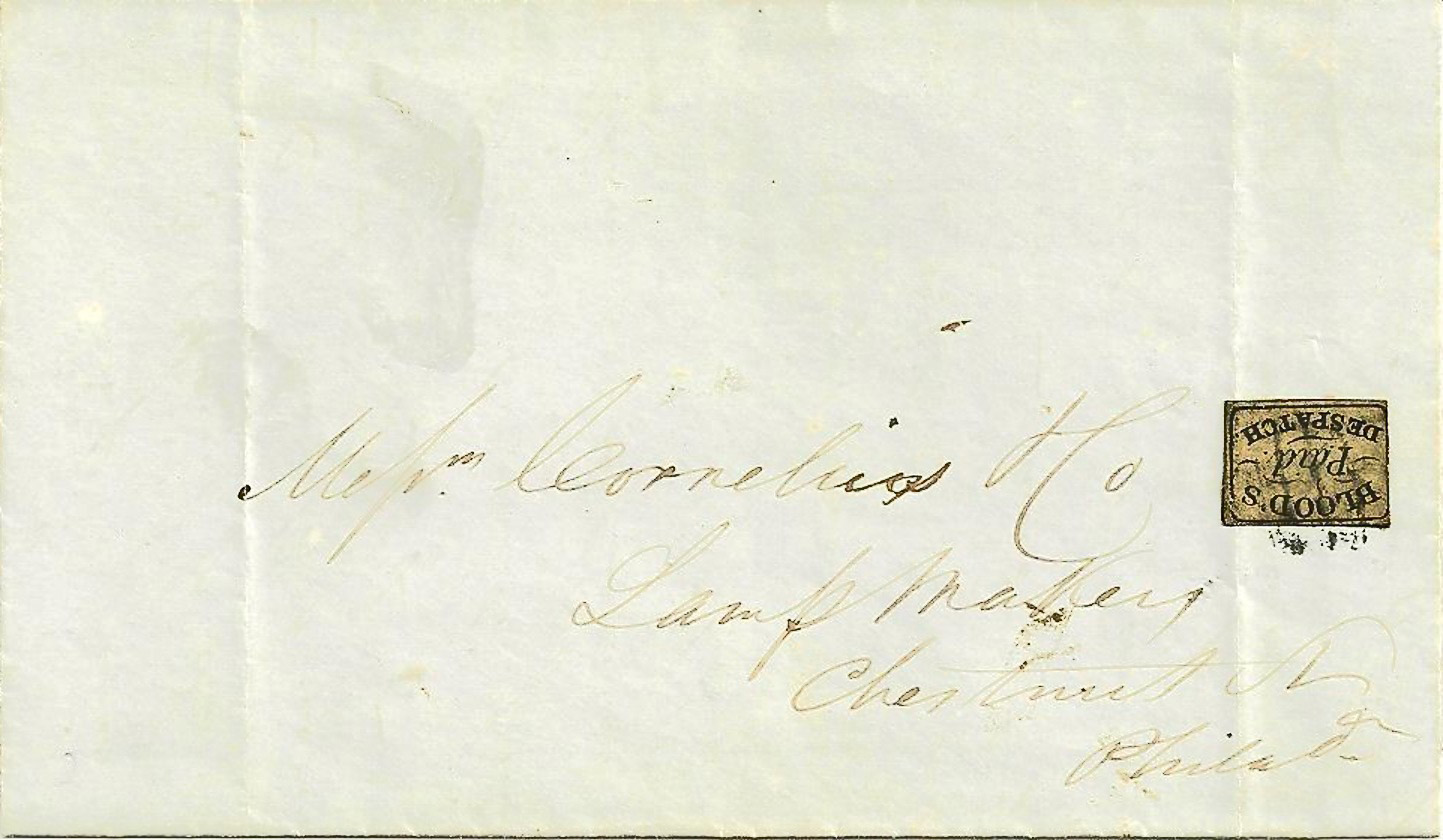 Messrs. Cornelius & Co
Lamp Makers
Chestnut St
Philada
BLOOD'S
Paid.
DESPATCH.